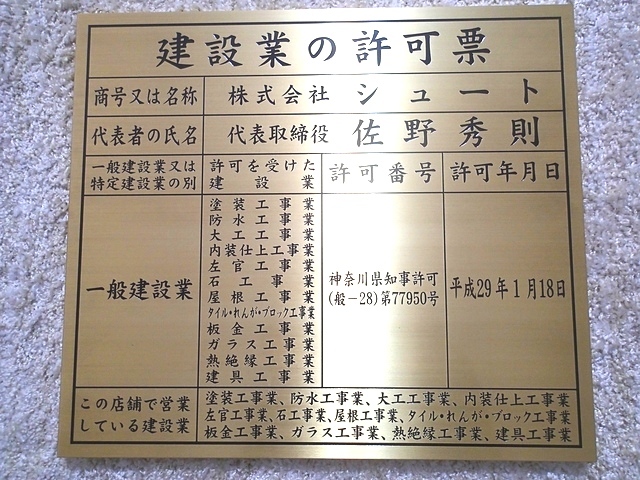 建設業の許可票
商号又は名称 株式会社 シュート
代表者の氏名 代表取締役 佐野秀則
一般建設業又は
特定建設業の別
許可を受けた
建設業
許可番号
許可年月日
一般建設業
塗装工事業
防水工事業
大工工事業
内装仕上工事業
左官工事業
石工事業
屋根工事業
タイル・れんが・ブロック工事業
板金工事業
ガラス工事業
熱絶縁工事業
建具工事業
神奈川県知事許可
(般－28)第77950号
平成29年1月18日
この店舗で営業
している建設業
塗装工事業、防水工事業、大工工事業、内装仕上工事業
左官工事業、石工事業、屋根工事業、タイル・れんが・ブロック工事業
板金工事業、ガラス工事業、熱絶縁工事業、建具工事業